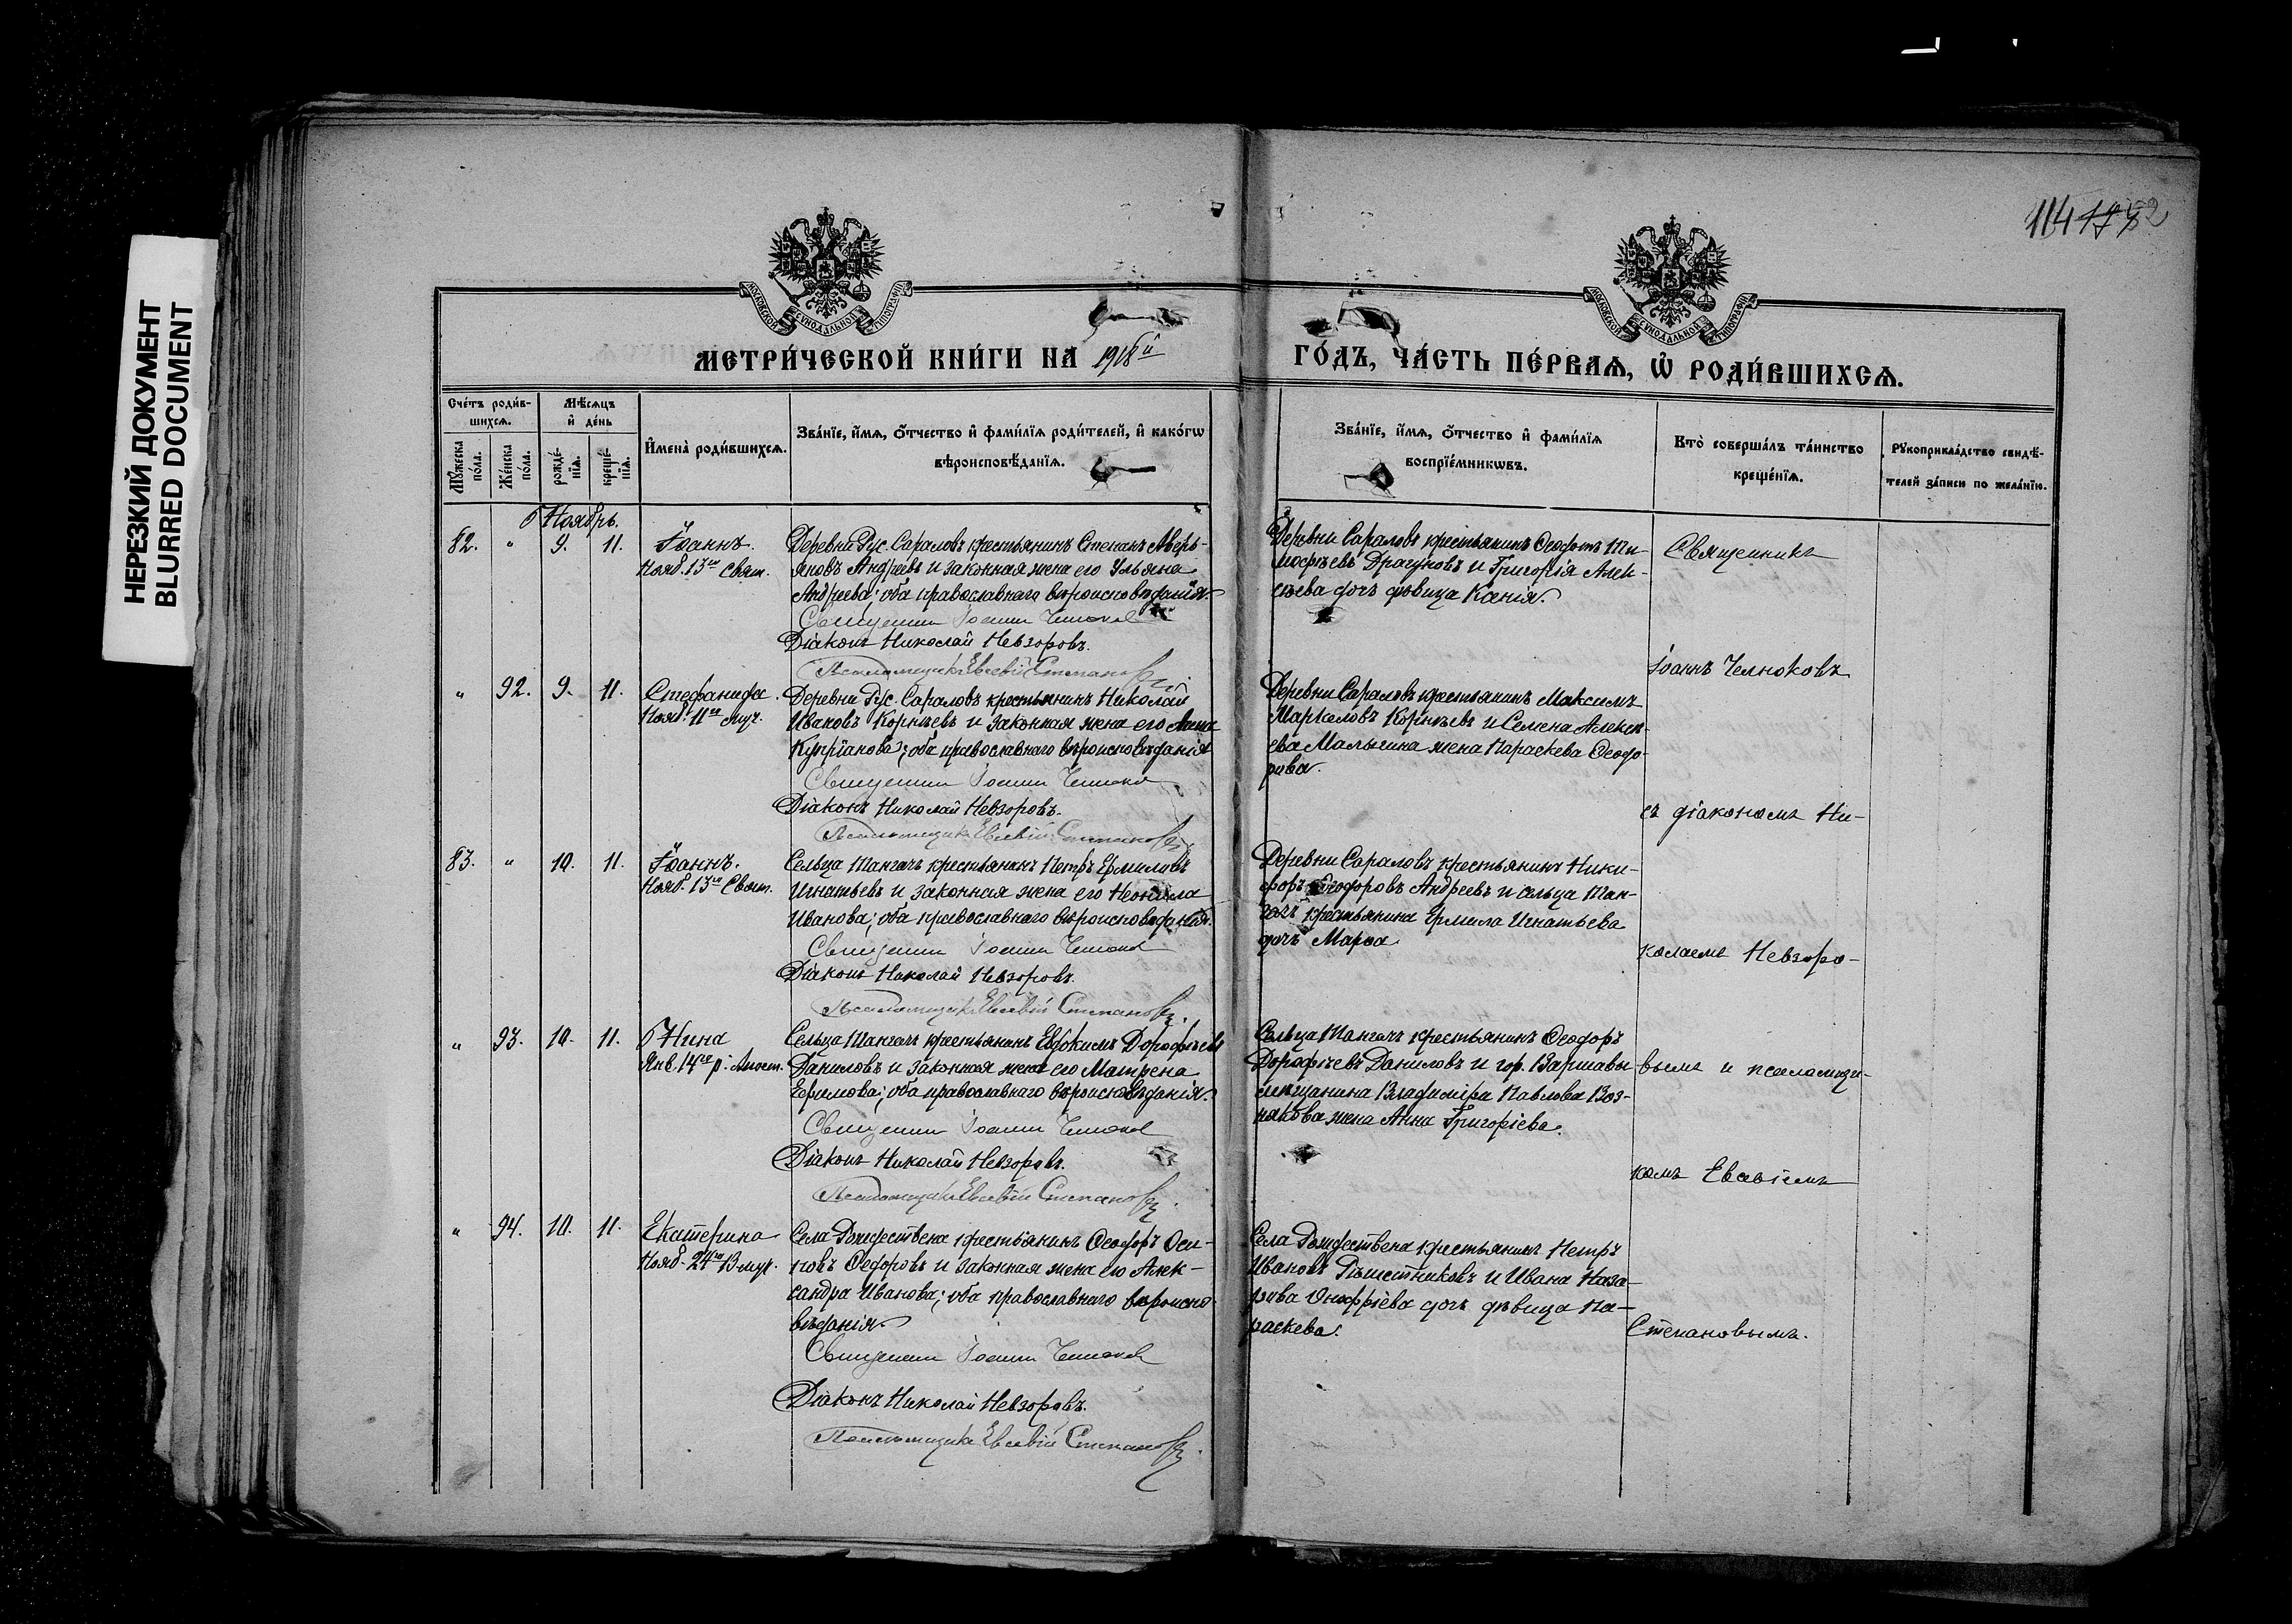 НЕРЕЗКИЙ ДОКУМЕНТ
BLURRED DOCUMENT
114
МОСКОВСКОЙ СѴНОДАЛЬНОЙ ТИПОГРАФІИ
МОСКОВСКОЙ СѴНОДАЛЬНОЙ ТИПОГРАФІИ
МЕТРИ́ЧЕСКОЙ КНИ́ГИ НА 1918й
ГО́ДЪ, ЧА́СТЬ ПЕ́РВАѦ, Ѽ РОДИ́ВШИХСѦ.
Сче́тъ роди́в-
шихсѧ.
Мꙋ́жеска по́ла.
Же́нска по́ла.
Мѣ́сѧцъ
и҆ де́нь
рожде́-
нїѧ.
креще́-
нїѧ.
И҆мена̀ роди́вшихсѧ.
Зва́нїе, и҆́мѧ, ѻ҆́тчество и҆ фами́лїѧ роди́телей, и҆ како́гѡ
вѣроисповѣ́данїѧ.
Зва́нїе, и҆́мѧ, ѻ҆́тчество и҆ фами́лїѧ
воспрїе́мникѡвъ.
Кто̀ соверша́лъ та́инство
креще́нїѧ.
Рꙋкоприкла́дство свидѣ́-
телей за́писи по жела́нїю.
Ноябрь.
82. " 9. 11.
Іоаннъ.
Нояб. 13го Свят.
Деревни Рус. Сараловъ крестьянинъ Степанъ Аверь-
яновъ Андреевъ и законная жена его Ульяна
Андреева; оба православнаго вѣроисповѣданія.
Священникъ Іоаннъ Челноковъ
Діаконъ Николай Невзоровъ.
Псаломщикъ Евсевій Степановъ.
Деревни Сараловъ крестьянинъ Ѳеодотъ Ти-
моѳеевъ Драгуновъ и Григорія Алек-
сѣева дочь дѣвица Ксенія.
Священникъ
" 92. 9. 11.
Стефанида.
Нояб. 11го муч.
Деревни Рус. Сараловъ крестьянинъ Николай
Ивановъ Корнѣевъ и законная жена его Анна
Купріанова; оба православнаго вѣроисповѣданія
Священникъ Іоаннъ Челноковъ
Діаконъ Николай Невзоровъ.
Псаломщикъ Евсевій Степановъ.
Деревни Сараловъ крестьянинъ Максимъ
Маркеловъ Корнѣевъ и Семена Алексѣ-
ева Малыгина жена Параскева Ѳеодо-
рова.
Іоаннъ Челноковъ
съ діакономъ Ни-
83. " 10. 11.
Іоаннъ.
Нояб. 13го Свят.
Сельца Шангачъ крестьянинъ Петръ Ермиловъ
Игнатьевъ и законная жена его Неонила
Иванова; оба православнаго вѣроисповѣданія.
Священникъ Іоаннъ Челноковъ
Діаконъ Николай Невзоровъ.
Псаломщикъ Евсевій Степановъ.
Деревни Сараловъ крестьянинъ Ники-
форъ Ѳеодоровъ Андреевъ и сельца Шан-
гачъ крестьянина Ермила Игнатьева
дочь Марѳа.
колаемъ Невзоро-
" 93. 10. 11.
Нина
Янв. 14го р. Апост.
Сельца Шангачъ крестьянинъ Евдокимъ Дороѳеевъ
Даниловъ и законная жена его Матрена
Ефимова; оба православнаго вѣроисповѣданія.
Священникъ Іоаннъ Челноковъ
Діаконъ Николай Невзоровъ.
Псаломщикъ Евсевій Степановъ.
Сельца Шангачъ крестьянинъ Ѳеодоръ
Дороѳеевъ Даниловъ и гор. Варшавы
мѣщанина Владиміра Павлова Воз-
някова жена Анна Григоріева.
вымъ и псаломщи-
комъ Евсевіемъ
" 94. 10. 11.
Екатерина
Нояб. 24го В-муч.
Села Рождествена крестьянинъ Ѳеодоръ Оси-
повъ Ѳедоровъ и законная жена его Алек-
сандра Иванова; оба православнаго вѣроиспо-
вѣданія.
Священникъ Іоаннъ Челноковъ
Діаконъ Николай Невзоровъ.
Псаломщикъ Евсевій Степановъ.
Села Рождествена крестьянинъ Петръ
Ивановъ Рѣшетниковъ и Ивана Наза-
рова Онофріева дочь дѣвица Па-
раскева.
Степановымъ.